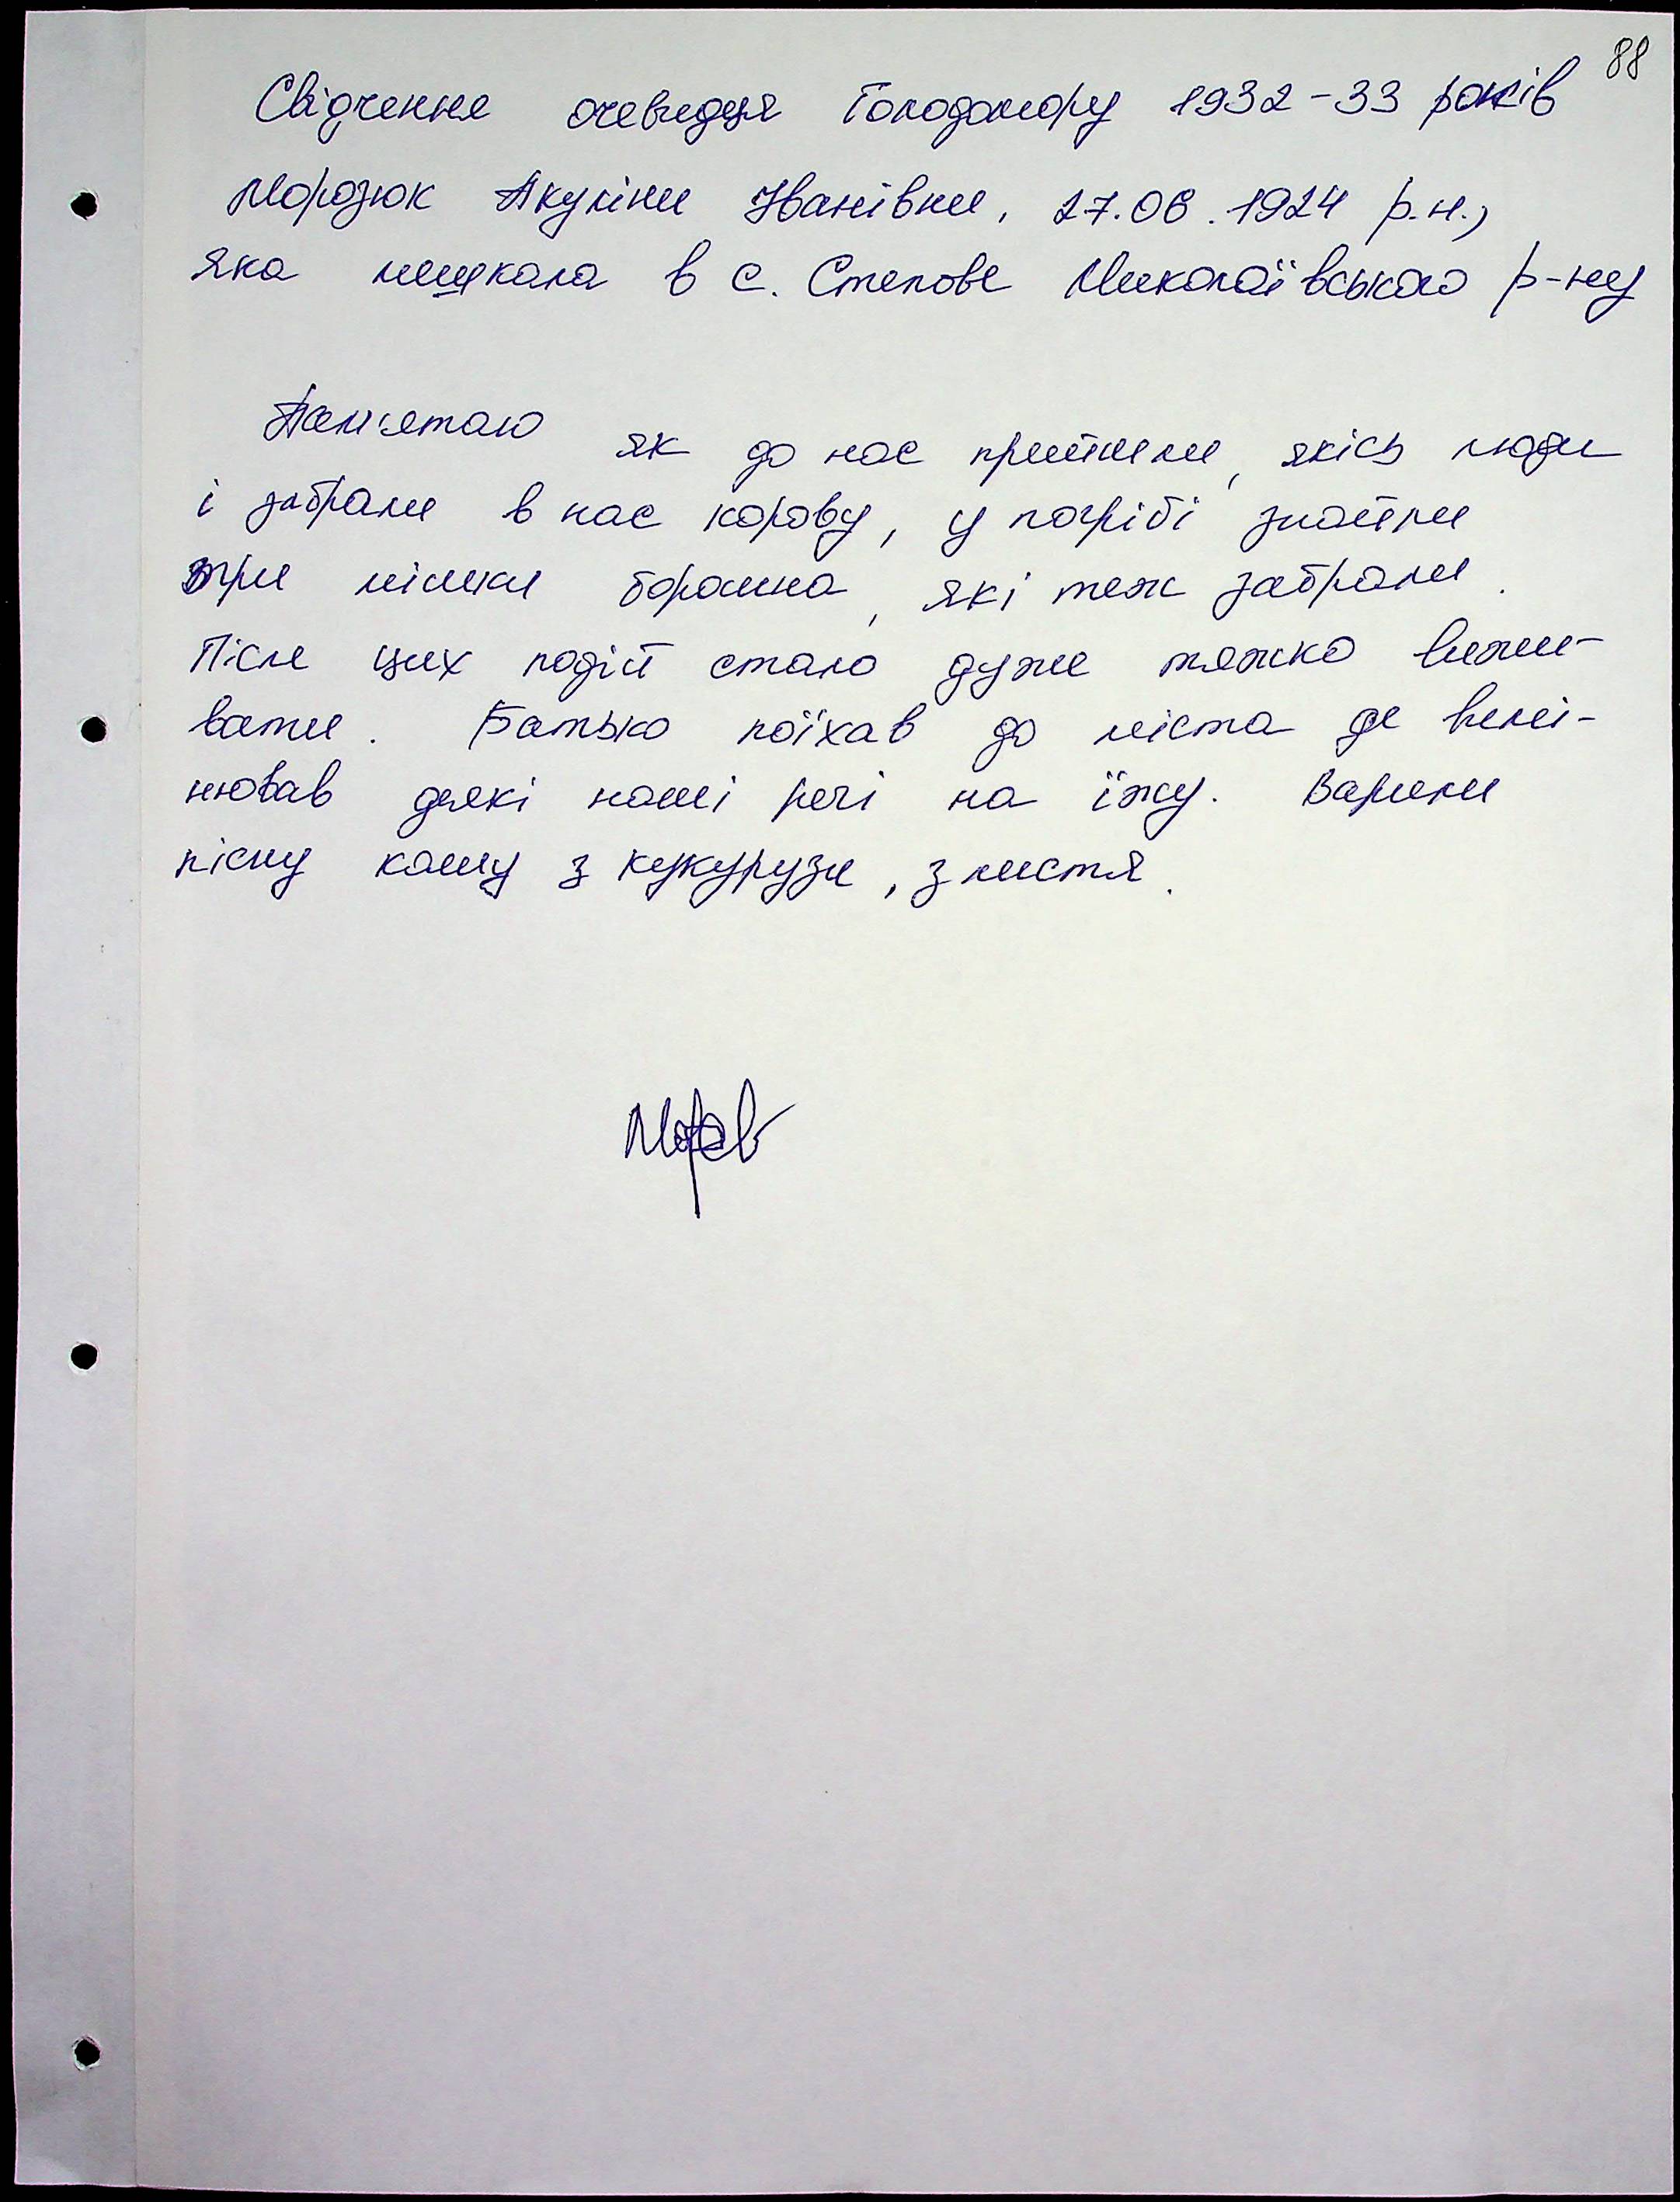 88
Свідчення очевидця Голодомору 1932-33 років
Морозюк Акуліни Іванівни, 27.06.1924 р.н.,
яка мешкала в с. Степове Миколаївського р-ну
Пам'ятаю як до нас прийшли, якісь люди
і забрали в нас корову, у погрібі знайшли
три мішки борошна, які теж забрали.
Після цих подій стало дуже тяжко вижи-
вати. Батько поїхав до міста де вимі-
нював деякі наші речі на їжу. Варили
пісну кашу з кукурузи, з листя.